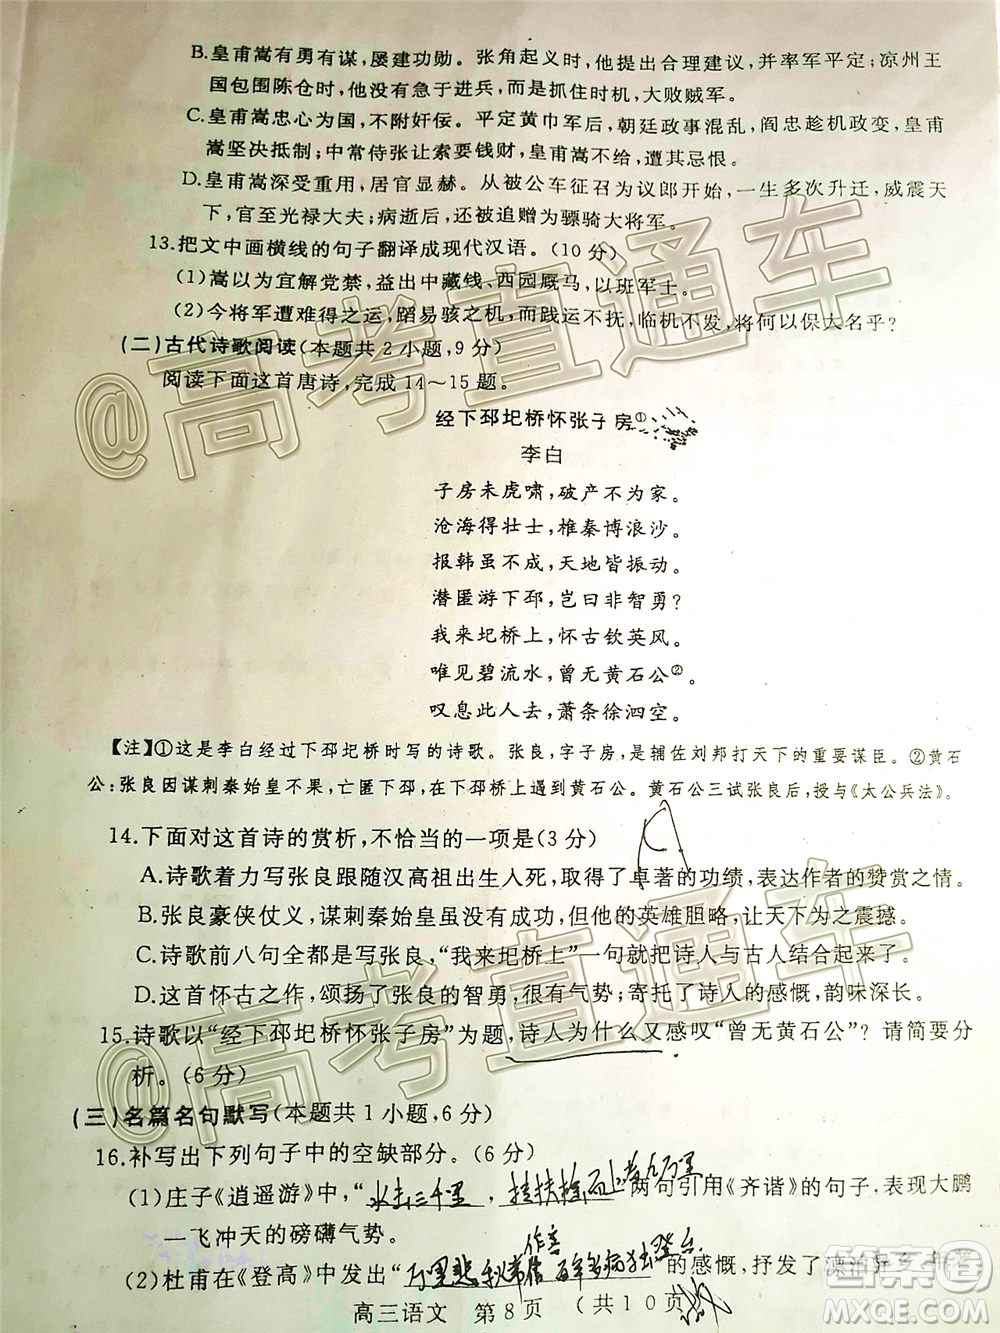 B.皇甫嵩有勇有谋,屡建功勋。张角起义时,他提出合理建议,并率军平定;凉州王
国包围陈仓时,他没有急于进兵,而是抓住时机,大败贼军。
C.皇甫嵩忠心为国,不附奸佞。平定黄巾军后,朝廷政事混乱,阎忠趁机政变,皇甫
嵩坚决抵制;中常侍张让索要钱财,皇甫嵩不给,遭其忌恨。
D.皇甫嵩深受重用,居官显赫。从被公车征召为议郎开始,一生多次升迁,威震天
下,官至光禄大夫;病逝后,还被追赠为骠骑大将军。
13.把文中画横线的句子翻译成现代汉语。(10分)
(1)嵩以为宜解党禁,益出中藏钱、西园厩马,以班军士。
(2)今将军遭难得之运,蹈易骇之机,而践运不抚,临机不发,将何以保大名乎?
(二)古代诗歌阅读(本题共2小题,9分)
阅读下面这首唐诗,完成14～15题。
经下邳圯桥怀张子房①
李白
子房未虎啸,破产不为家。
沧海得壮士,椎秦博浪沙。
报韩虽不成,天地皆振动。
潜匿游下邳,岂曰非智勇?
我来圯桥上,怀古钦英风。
唯见碧流水,曾无黄石公②。
叹息此人去,萧条徐泗空。
【注】①这是李白经过下邳圯桥时写的诗歌。张良,字子房,是辅佐刘邦打天下的重要谋臣。②黄石
公:张良因谋刺秦始皇不果,亡匿下邳,在下邳桥上遇到黄石公。黄石公三试张良后,授与《太公兵法》。
14.下面对这首诗的赏析,不恰当的一项是(3分)
A.诗歌着力写张良跟随汉高祖出生入死,取得了卓著的功绩,表达作者的赞赏之情。
B.张良豪侠仗义,谋刺秦始皇虽没有成功,但他的英雄胆略,让天下为之震撼。
C.诗歌前八句全都是写张良,“我来圯桥上”一句就把诗人与古人结合起来了。
D.这首怀古之作,颂扬了张良的智勇,很有气势;寄托了诗人的感慨,韵味深长。
15.诗歌以“经下邳圯桥怀张子房”为题,诗人为什么又感叹“曾无黄石公”?请简要分
析。(6分)
(三)名篇名句默写(本题共1小题,6分)
16.补写出下列句子中的空缺部分。(6分)
(1)庄子《逍遥游》中,“水击三千里,抟扶摇而上者九万里”两句引用《齐谐》的句子,表现大鹏
一飞冲天的磅礴气势。
(2)杜甫在《登高》中发出“万里悲秋常作客 百年多病独登台 的感慨,抒发了漂泊异乡
高三语文 第8页 (共10页)
@高考直通车
@高考直通车
答案圈
MXQE.COM